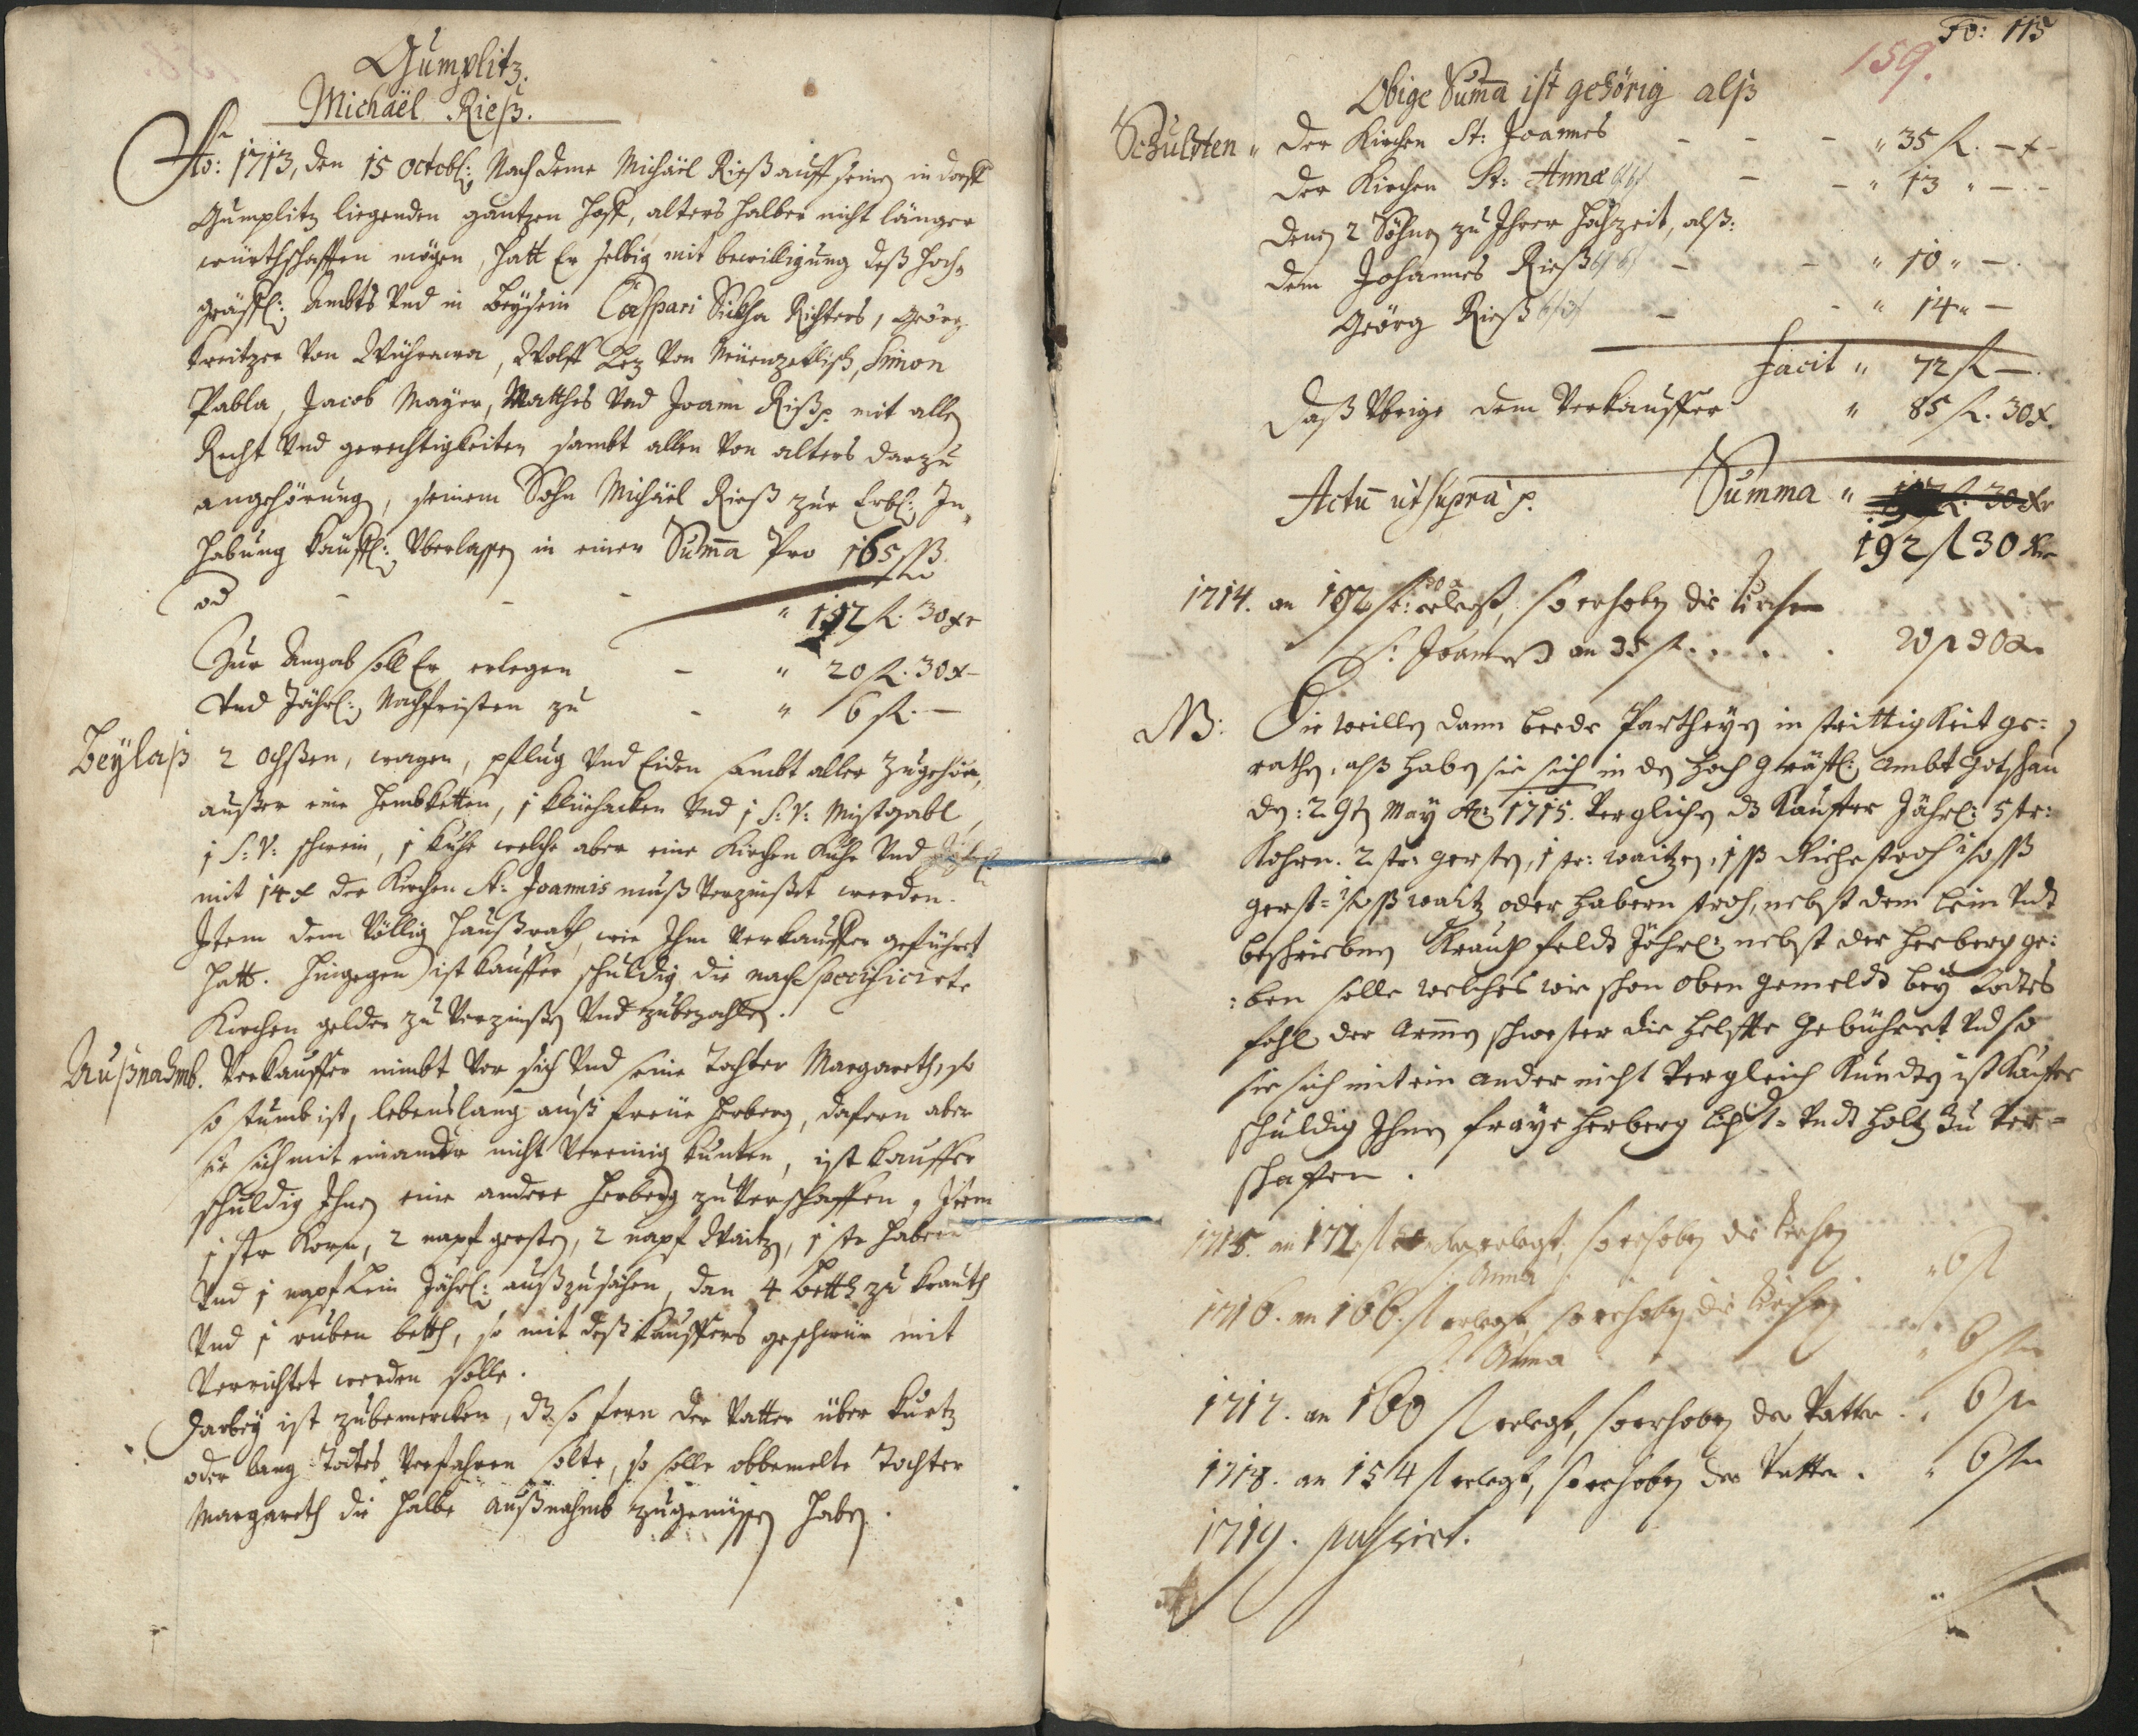 Gumplitz.
Michaël Rieß.
Ao: 1713, den 15 Octobl: Nach deme Michäel Rieß auff seinen in dorff
Gumplitz liegenden gantzen Hoff, alters halber nicht länger
würthschafften mögen, hatt Er selbig mit bewilligung deß Hoch-
gräffl: Ambts Vnd in beysein Caspari Richters, Geörg
Kreitzer Von, Wolff Von, Simon
Pabla, Jacob Mayer, Matthes Vnd Joann Rieß p. mit allen
Recht Vnd gerechtigkeiten sambt allen Von alters darzu
angehörung, seinem Sohn Michäel Rieß zur Erbl: In-
habung Käuffl: Vberlassen in einer Suma Pro 165 ß
od - - - " 192 fl. 30 xr
Zur Angab soll Er erlegen - " 20 fl. 30 x
Vnd Jährl: Nachfristen zu - " 6 fl. -
Beylaß 2 Ochßen, wagen, pflug Vnd Eiden sambt aller Zugehör,
außer eine Hembketten, 1 Vnd 1 S: V: Mistgabl,
1 S: V: schwein, 1 Kuhe welche aber eine Kirchen Kuhe Vnd Jährl:
mit 14 x der Kirchen St: Joannis muß Verzinßet werden.
Item dem Völlig Haußrath, wie Ihm Verkauffer geführet
hatt. Hingegen ist Kauffer schuldig die nach specificirte
Kirchen gelder zu Verzinßen Vnd zubezahlen.
Außnahmb. Verkauffer nimbt Vor sich Vnd seine Tochter Margareth, so
so stumb ist, lebenslang auß freüe Herberg, dafern aber
sie sich mit einander nicht Vereinig kunten, ist Kauffer
schuldig Ihnen eine andere Herberg zu Verschaffen, Item
1 str Korn, 2 napf gersten, 2 napf Waitz, 1 str Habern
Vnd 1 napf Lein Jährl: außzusähen, dan 4 betth zu Krauth
Vnd 1 ruben betth, so mit deß Kauffers geschwür mit
Verrichtet werden solle.
Darbey ist zubemercken, dz so fern der Vatter über kurtz
oder lang Todtes Verfahren solte, so solle obbemelte Tochter
Margareth die halbe Außnahmb zugenüssen haben.
Fo: 115
159.
Obige Suma ist gehörig alß
Schulden " der Kirchen St: Joannes - - - " 35 fl. - x -
der Kirchen St: Annæ - - " 13 " - -
denen 2 Söhnen zu Ihrer Hochzeit, alß:
dem Johannes Rieß - - " 10 " -
Geörg Rieß - - " 14 " -
Facit " 72 fl -
daß Vbrige dem Verkauffer " 85 fl. 30 x
Actu ut supra p. Summa " 30 xr
192 fl 30 xr
1714. an 192 fl: 30 x erlegt, so erhoben die Kirchen
S: Joannes an 35 fl . . . . 20 fl 30 xr
NB: Die weillen dann beede Partheyen in strittigkeit ge-
rathen, alß haben sie sich in den Hoch Gräffl: Ambt Gotschau
den: 29ten May Ao: 1715. Verglichen dz Kauffer Jährl: 5 str:
Kohrn. 2 str: gersten, 1 str: waitzen, 1 ß stroh
gerst= waitz oder Habern stroh, nebst dem Lein Vndt
beschriebnen Krauth feldt Jährl: nebst der Herberg ge:
:ben solle welches wie schon oben gemeldt bey Todtes
fahl der armen schwester die helffte gebühret Vndt so
sie sich mit ein ander nicht Vergleich kundten ist Kauffer
schuldig Ihnen fraye Herberg Licht= Vndt Holtz zu Ver-
schaffen.
1715. an 172 fl erlegt, so erhoben die Kirchen
S: Anna " 6 fl
1716. an 166. fl erlegt, so erhoben die Kirchen
S: Anna " 6 fl
1717. an 160 fl erlegt, so erhoben der Vatter . " 6 fl
1718. an 154 fl erlegt, so erhoben der Vatter . " 6 fl
1719. passirt.